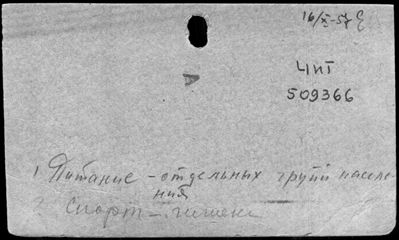 16/X-57
ЧИТ
509366
1 Питание - отдельных групп населе-
ния
2 Спорт - гигиена